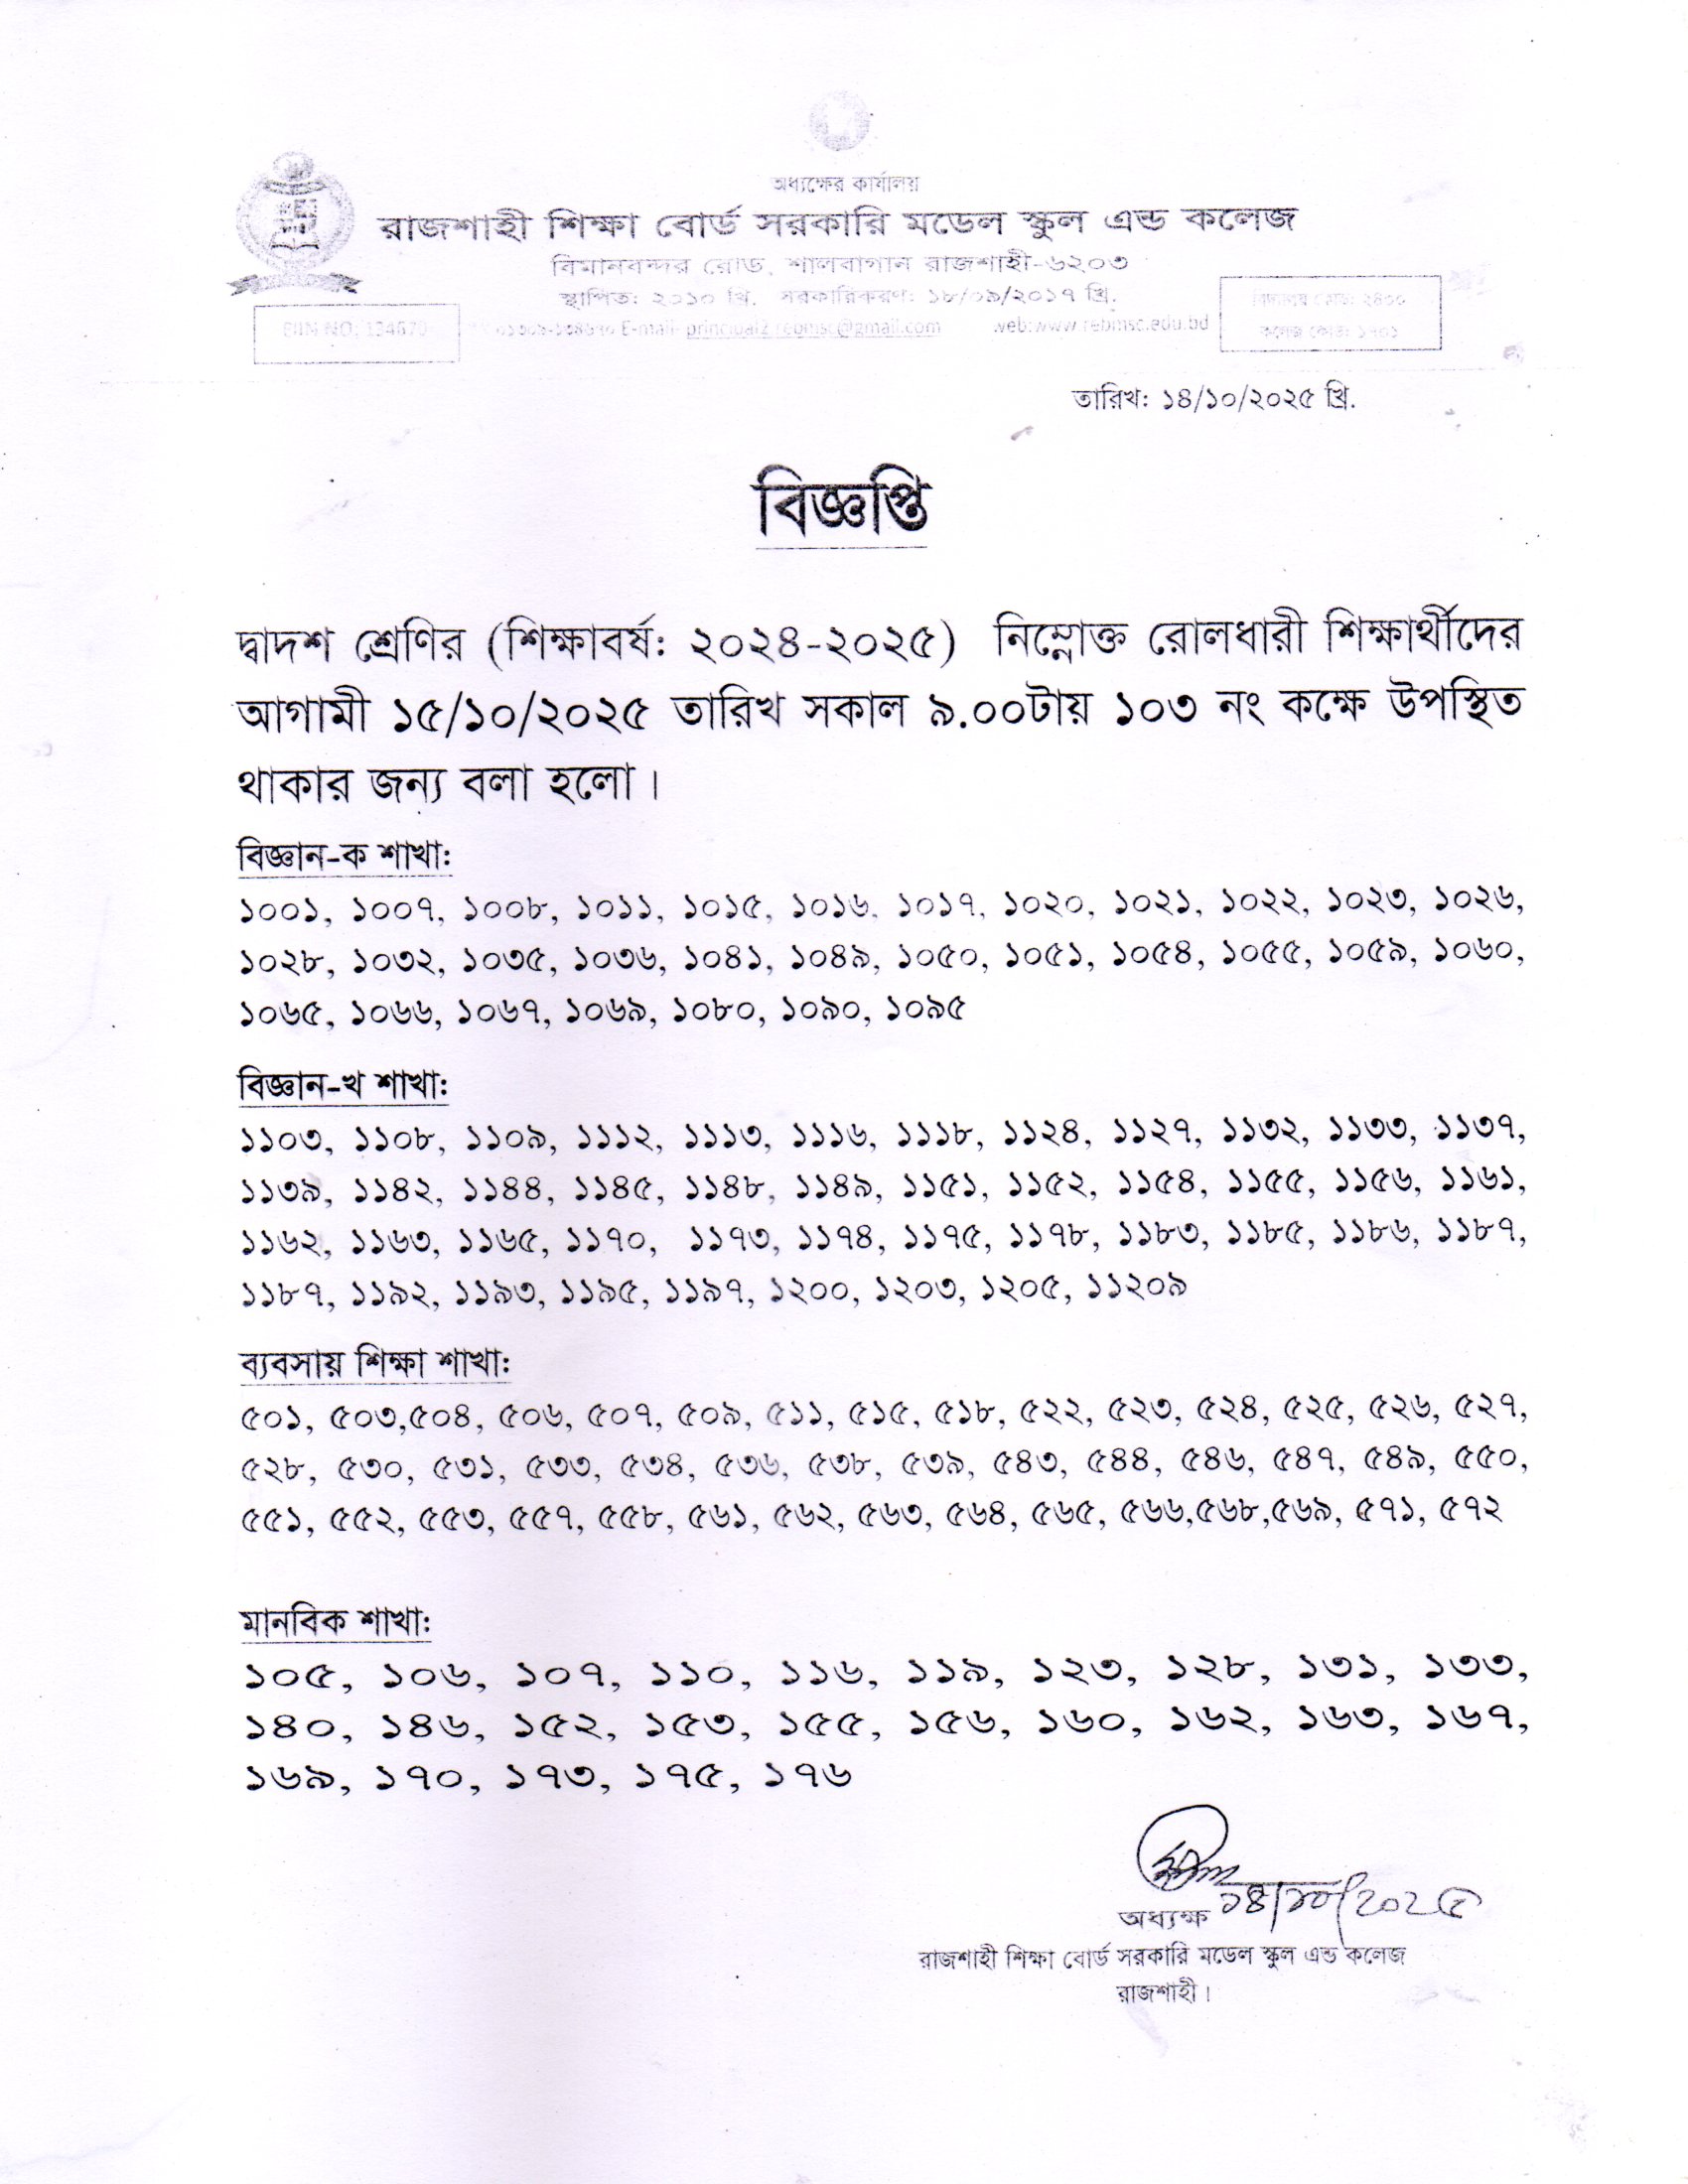 অধ্যক্ষের কার্যালয়
রাজশাহী শিক্ষা বোর্ড সরকারি মডেল স্কুল এন্ড কলেজ
বিমানবন্দর রোড, শালবাগান রাজশাহী-৬২০৩
স্থাপিত: ২০১০ খ্রি. সরকারিকরণ: ১৮/০৯/২০১৭ খ্রি.
EIIN NO:
E-mail- @gmail.com web:www.rebmsc.edu.bd
তারিখ: ১৪/১০/২০২৫ খ্রি.
বিজ্ঞপ্তি
দ্বাদশ শ্রেণির (শিক্ষাবর্ষ: ২০২৪-২০২৫) নিম্নোক্ত রোলধারী শিক্ষার্থীদের
আগামী ১৫/১০/২০২৫ তারিখ সকাল ৯.০০টায় ১০৩ নং কক্ষে উপস্থিত
থাকার জন্য বলা হলো।
বিজ্ঞান-ক শাখা:
১০০১, ১০০৭, ১০০৮, ১০১১, ১০১৫, ১০১৬, ১০১৭, ১০২০, ১০২১, ১০২২, ১০২৩, ১০২৬,
১০২৮, ১০৩২, ১০৩৫, ১০৩৬, ১০৪১, ১০৪৯, ১০৫০, ১০৫১, ১০৫৪, ১০৫৫, ১০৫৯, ১০৬০,
১০৬৫, ১০৬৬, ১০৬৭, ১০৬৯, ১০৮০, ১০৯০, ১০৯৫
বিজ্ঞান-খ শাখা:
১১০৩, ১১০৮, ১১০৯, ১১১২, ১১১৩, ১১১৬, ১১১৮, ১১২৪, ১১২৭, ১১৩২, ১১৩৩, ১১৩৭,
১১৩৯, ১১৪২, ১১৪৪, ১১৪৫, ১১৪৮, ১১৪৯, ১১৫১, ১১৫২, ১১৫৪, ১১৫৫, ১১৫৬, ১১৬১,
১১৬২, ১১৬৩, ১১৬৫, ১১৭০, ১১৭৩, ১১৭৪, ১১৭৫, ১১৭৮, ১১৮৩, ১১৮৫, ১১৮৬, ১১৮৭,
১১৮৭, ১১৯২, ১১৯৩, ১১৯৫, ১১৯৭, ১২০০, ১২০৩, ১২০৫, ১১২০৯
ব্যবসায় শিক্ষা শাখা:
৫০১, ৫০৩,৫০৪, ৫০৬, ৫০৭, ৫০৯, ৫১১, ৫১৫, ৫১৮, ৫২২, ৫২৩, ৫২৪, ৫২৫, ৫২৬, ৫২৭,
৫২৮, ৫৩০, ৫৩১, ৫৩৩, ৫৩৪, ৫৩৬, ৫৩৮, ৫৩৯, ৫৪৩, ৫৪৪, ৫৪৬, ৫৪৭, ৫৪৯, ৫৫০,
৫৫১, ৫৫২, ৫৫৩, ৫৫৭, ৫৫৮, ৫৬১, ৫৬২, ৫৬৩, ৫৬৪, ৫৬৫, ৫৬৬,৫৬৮,৫৬৯, ৫৭১, ৫৭২
মানবিক শাখা:
১০৫, ১০৬, ১০৭, ১১০, ১১৬, ১১৯, ১২৩, ১২৮, ১৩১, ১৩৩,
১৪০, ১৪৬, ১৫২, ১৫৩, ১৫৫, ১৫৬, ১৬০, ১৬২, ১৬৩, ১৬৭,
১৬৯, ১৭০, ১৭৩, ১৭৫, ১৭৬
১৪/১০/২০২৫
অধ্যক্ষ
রাজশাহী শিক্ষা বোর্ড সরকারি মডেল স্কুল এন্ড কলেজ
রাজশাহী।